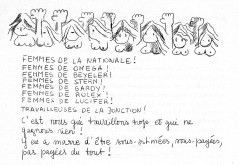 FEMMES DE LA NATIONALE!
FEMMES DE OMEGA!
FEMMES DE BEYELER!
FEMMES DE STERN!
FEMMES DE GARDY!
FEMMES DE ROLEX!
FEMMES DE LUCIFER!
TRAVAILLEUSES DE LA JONCTION!
C'est nous qui travaillons trop et qui ne
gagnons rien!
Y en a marre d'être sous-estimées, mal payées,
pas payées du tout!